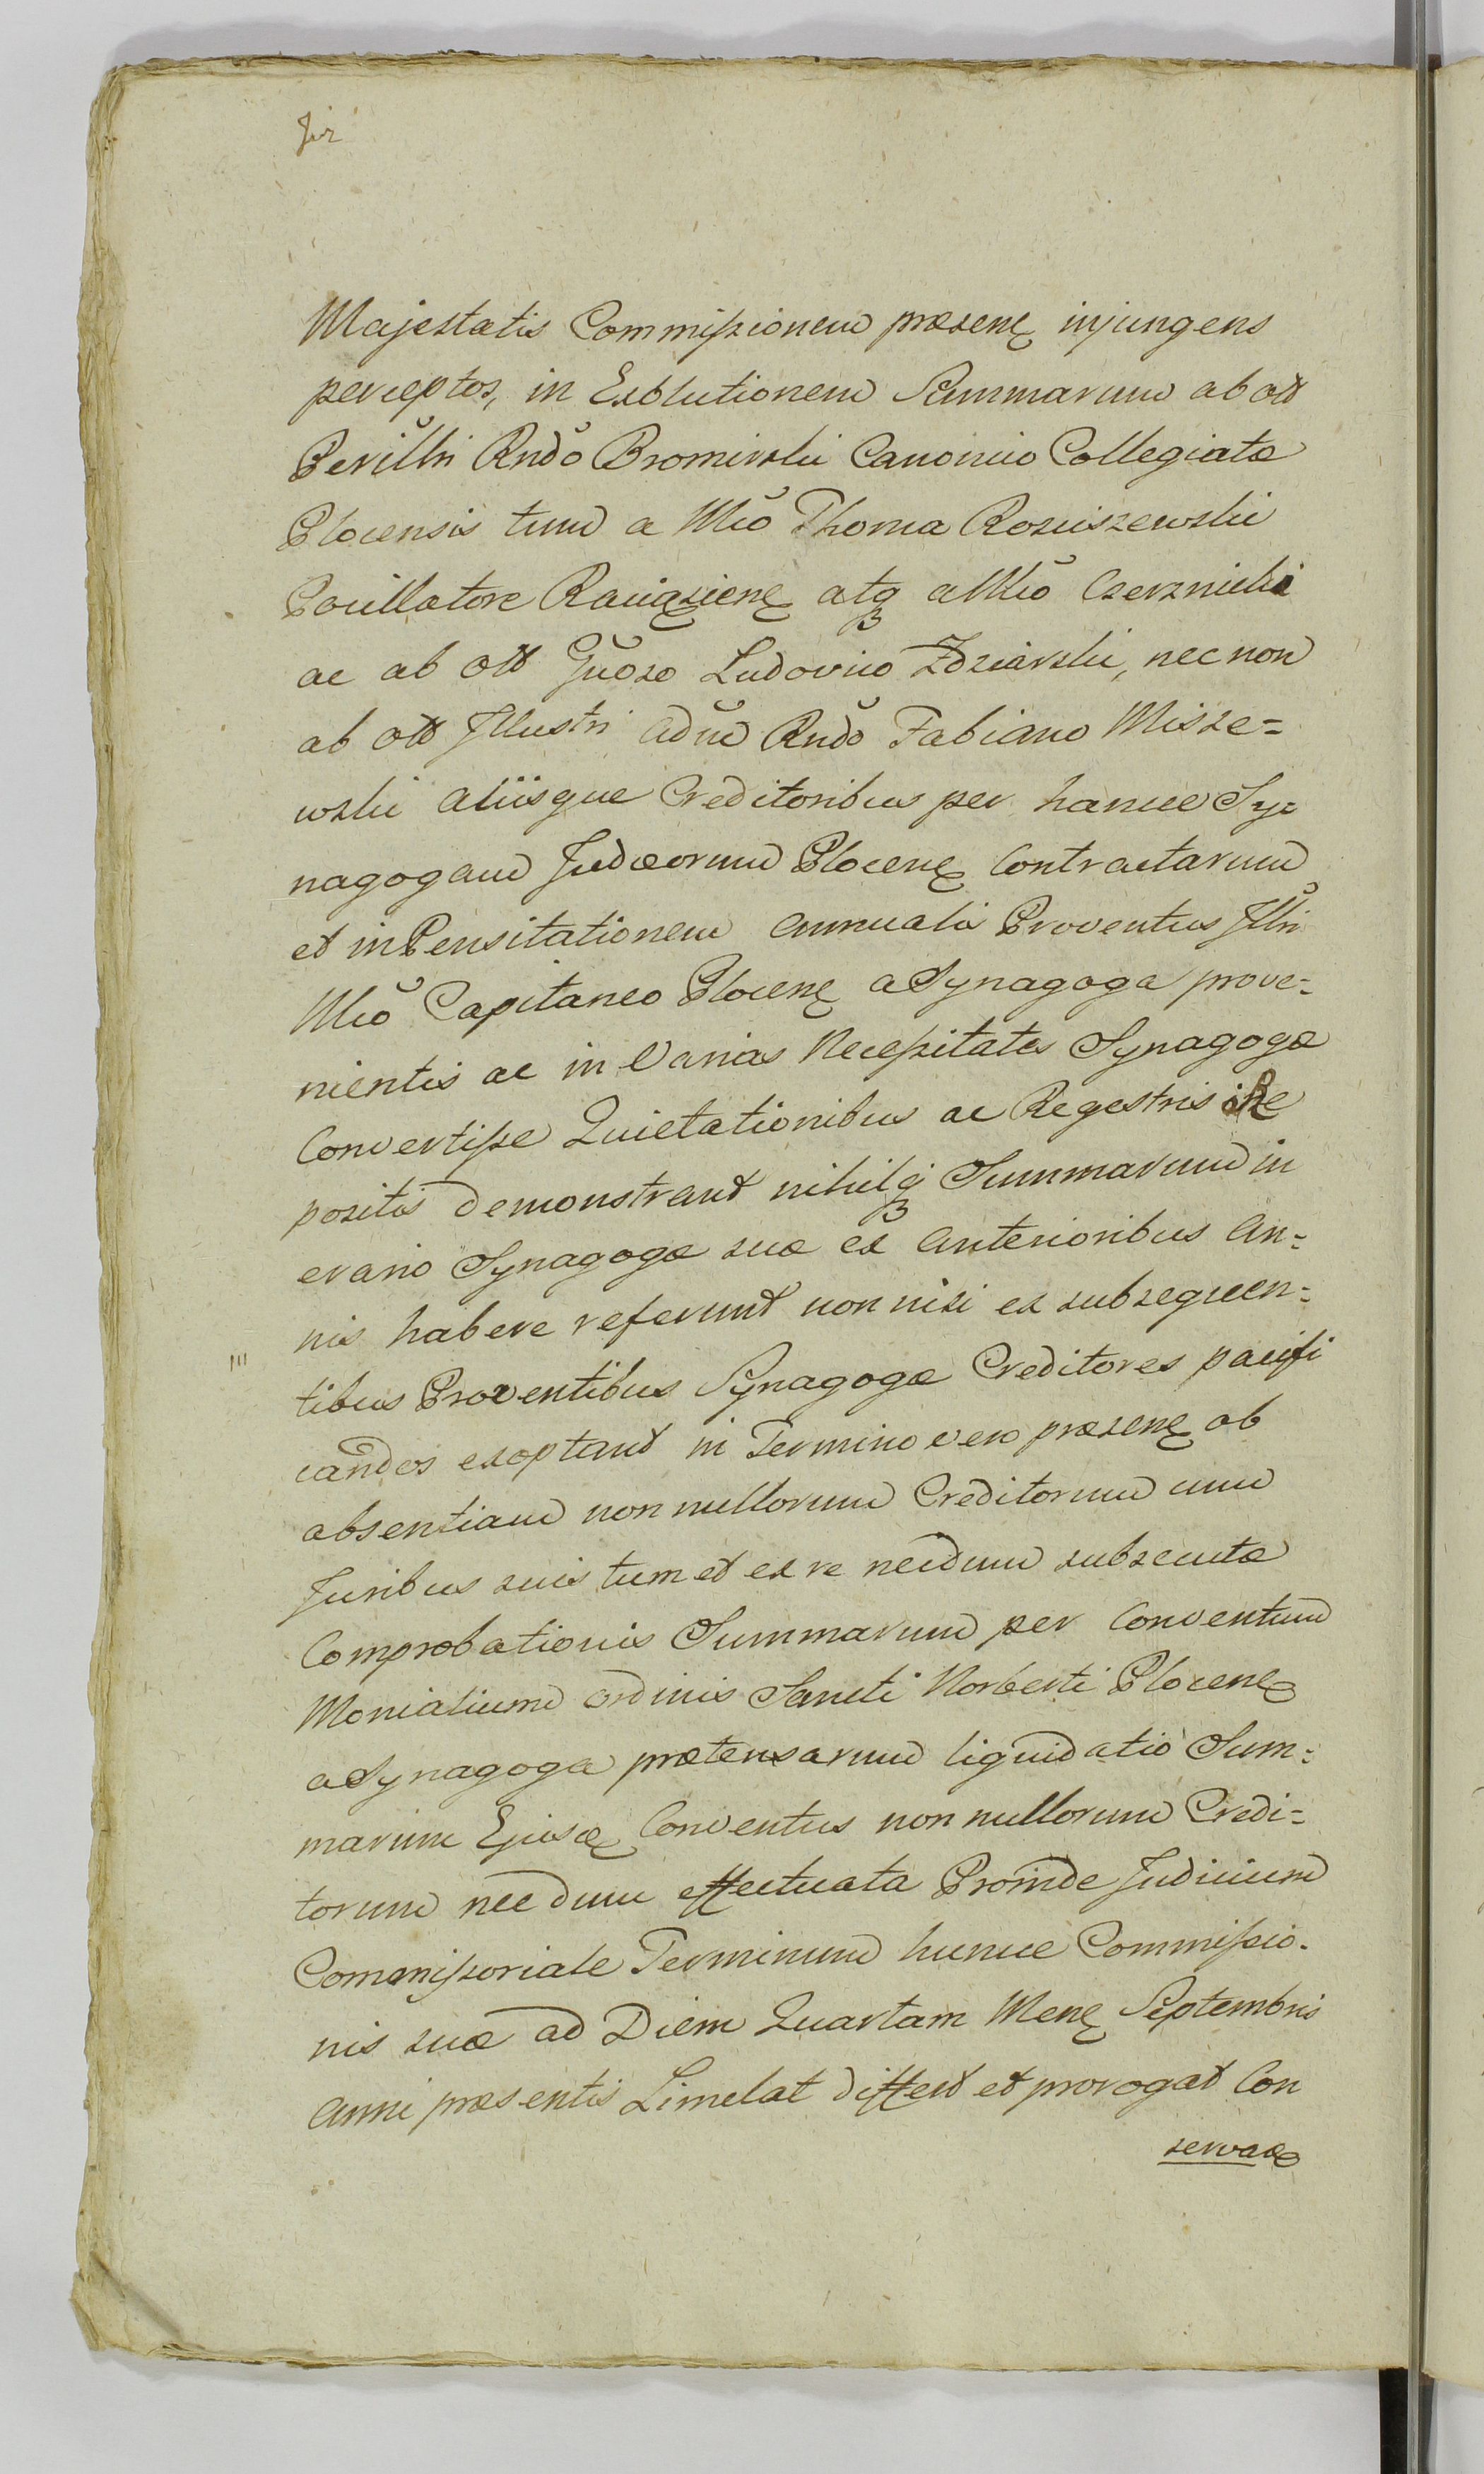 Majestatis Commissionem præsenę injungens
perceptos, in Exolutionem Summarum ab olt
Perilli Rndo Bromirski Canonico Collegiatæ
Plocensis tum a Mco Thoma Rosciszewski
Pocillatore Raciązienę atq aMco Czerznicki
ac ab olt Gnoso Ludovico Zdziarski, necnon
ab olt Illustri Adm Rndo Fabiano Misze=
wski aliisque Creditoribus per hancce Sy=
nagogam Judæorum Plocenę Contractarum
et in Pensitationem annualis Proventus Illri
Mco Capitaneo Plocenę aSynagoga prove=
nientis ac in Varias Necessitates Synagogæ
Convertisse Quietationibus ac Regestris
positis demonstrant nihilq Summarum in
erario Synagogæ suæ ex Anterioribus An=
nis habere referunt non nisi ex subsequen=
tibus Proventibus Synagogæ Creditores pacifi
candos exoptant in Termino vero præsenę ob
absentiam non nullorum Creditorum cum
Juribus suis tum et ex re necdum subsecutæ
Comprobationis Summarum per Conventum
Monialium Ordinis Sancti Norberti Plocenę
aSynagoga prætensarum liquidatio Sum=
marum Ejusdę Conventus non nullorum Credi=
torum nec dum effectuata Proinde Judicium
Commissoriale Terminum huncce Commissio-
nis suæ ad Diem Quartam Menę Septembris
anni præsentis Limitat differt et prorogat Con
servaę